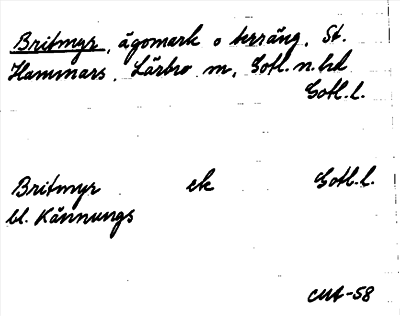 Britmyr, ägomark o terräng, St.
Hammars, Lärbro sn, Gotl. n. hd
Gotl. l.
Britmyr ek Gotl. l.
bl. Kännungs
CMA-58